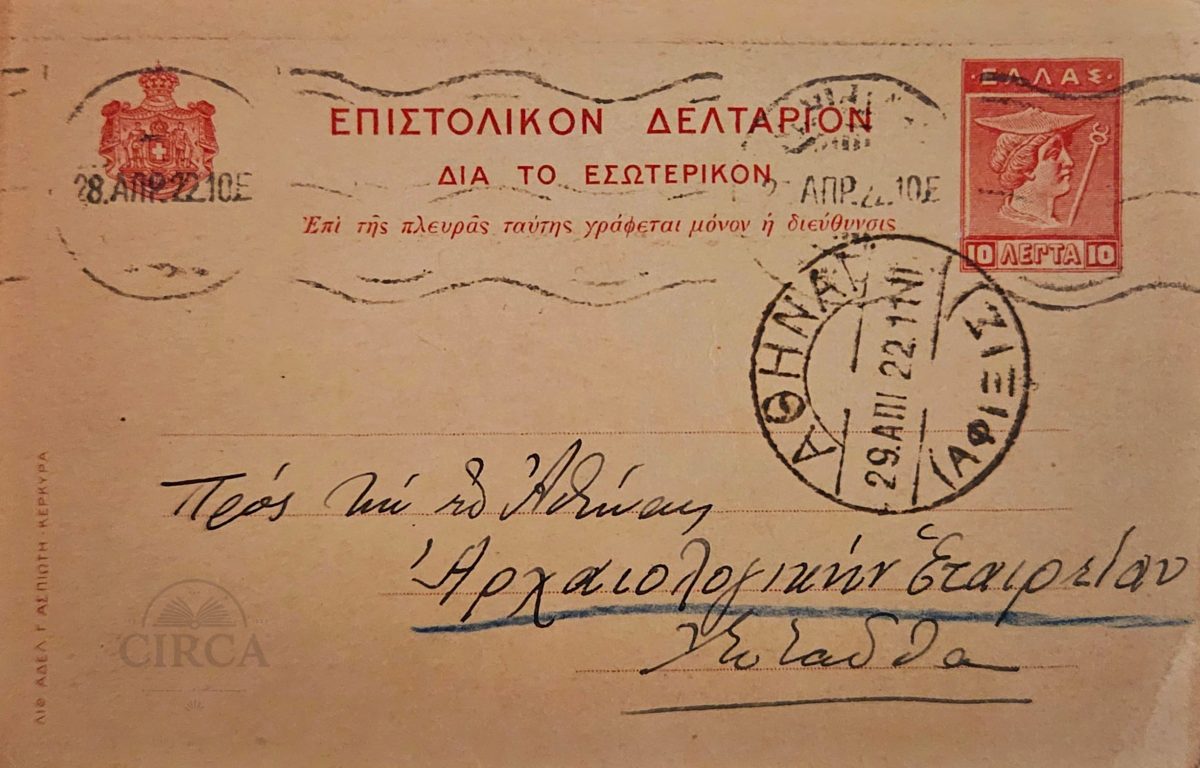 ΕΛΛΑΣ
ΕΠΙΣΤΟΛΙΚΟΝ ΔΕΛΤΑΡΙΟΝ
28.ΑΠΡ.22.10Σ
ΑΠΡ.22.10Σ
ΔΙΑ ΤΟ ΕΣΩΤΕΡΙΚΟΝ
Ἐπὶ τῆς πλευρᾶς ταύτης γράφεται μόνον ἡ διεύθυνσις
10 ΛΕΠΤΑ 10
ΑΘΗΝΑΙ
29.ΑΠΡ 22.11
(ΑΦΙΞΙΣ
Πρός τὴν ἐν Ἀθήναις
Ἀρχαιολογικὴν Ἑταιρείαν
ΛΙΘ ΑΔΕΛ Γ ΑΣΠΙΩΤΗ-ΚΕΡΚΥΡΑ
CIRCA